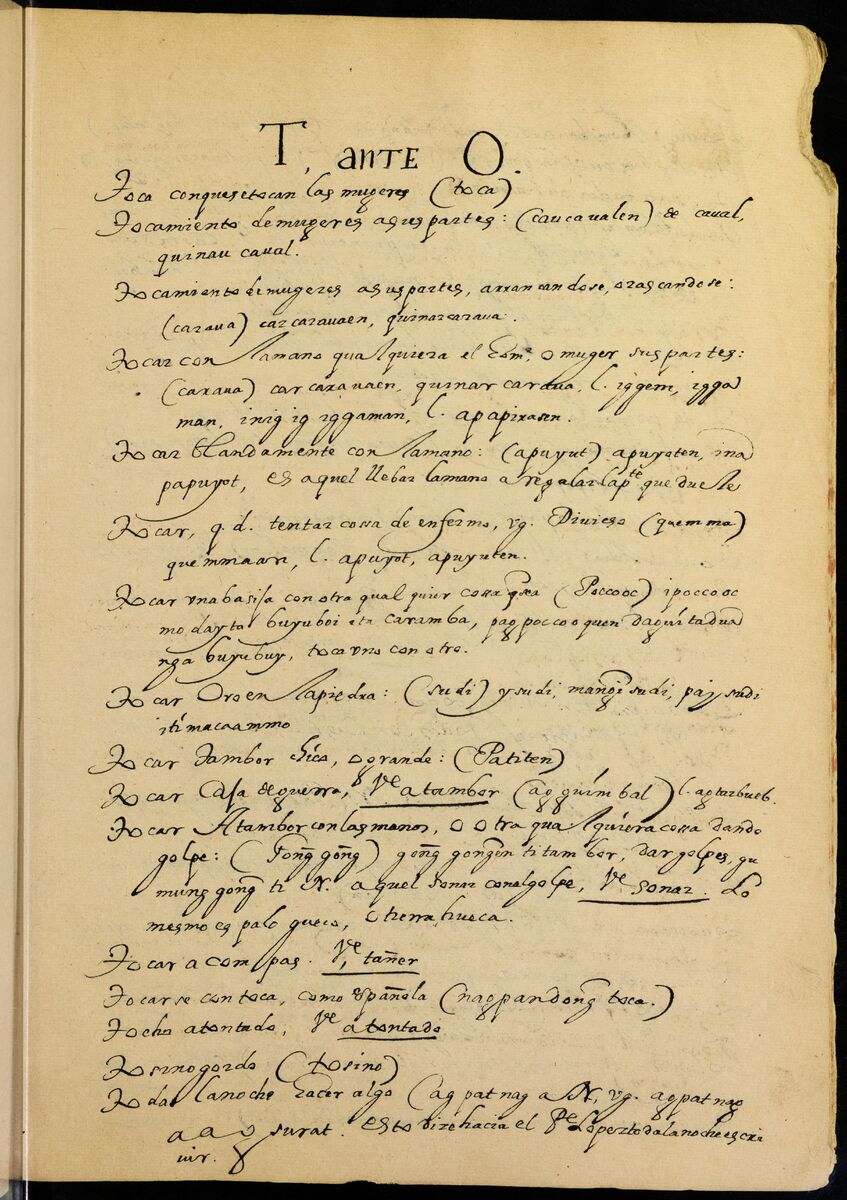 T, ante O.
Toca conquesetocan las mugeres (toca)
Tocamiento demugeres asuspartes: (caucavalen) de caval,
quinau caval.
Tocamiento demugeres asuspartes, arrancandose, orascandose:
(carava) carcaravaen, quinarcarava.
Tocar con lamano qualquiera el hom.e, o muger suspartes:
(carava) carcaravaen, quinarcarava, l. iggem, igga
man, inig ig iggaman, l. apapirasen.
Tocar blandamente con lamano: (apuyut) apuyoten, ina
papuyot, es aquel llebar lamano a regalar lapte que duele
Tocar, q. d. tentar cossa de enfermo, vg. Divieso (quemma)
quemmaan, l. apuyot, apuyuten.
Tocar vnabasija con otra qual quier cossa qsea (Poccooc) ipoccooc
mo dayta buyuboi ita caramba, pagpoccooquen daguitadua
nga buyubuy, toca vno con otro.
Tocar Oro en lapiedra: (sudi) ysudi, mangisudi, paysudi
itimacaammo
Tocar Tambor chico, ogrande: (Patiten)
Tocar Caja deguerra, Ve atambor (agguimbal) l. agtarbueb.
Tocar Atambor con las manos, o otra qualquiera cossa dando
golpe: (Gong gong) gong gongen ti tambor, dar golpes, gu
mung gong ti N. aquel sonar conalgolpe, Ve sonar. Lo
mesmo es palo gueco, o tierra hueca.
Tocar a compas. Ve, tañer
Tocarse con toca, como española (nagpandong toca.)
Tocho atontado, Ve atontado
Tosinogordo (tosino)
Toda lanoche hacer algo (agpatnag a N, vg. agpatnag
a ag surat. esto dire hacia el Pe Lopez todalanoche escri
uir.